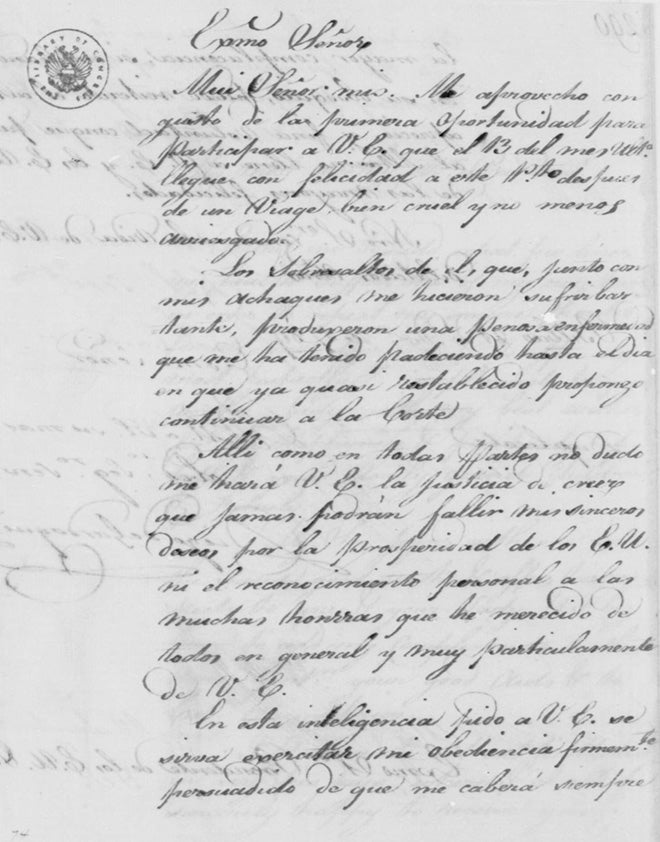 Exmo Señor
Mui Señor mio. Me aprovecho con
gusto de la primera oportunidad para
participar a V. E. que el 13 del mes Ulto.
llegue con felicidad a este Pto. despues
de un Viage bien cruel y no menos
arriesgado.
Los Sobresaltos de el, que, junto con
mis achaques me hicieron sufrir bas
tante, produxeron una penosa enfermedad
que me ha tenido padeciendo hasta el dia
en que ya quasi restablecido propongo
continuar a la Corte
Alli como en todas partes no dudo
me hará V. E. la justicia de creer
que jamas podrán fallir mis sinceros
deseos por la prosperidad de los E. U.
ni el reconocimiento personal a las
muchas honrras que he merecido de
todos en general y muy particularmente
de V. E.
En esta inteligencia pido a V. E. se
sirva exercitar mi obediencia firmemte
persuadido de que me caberá siempre